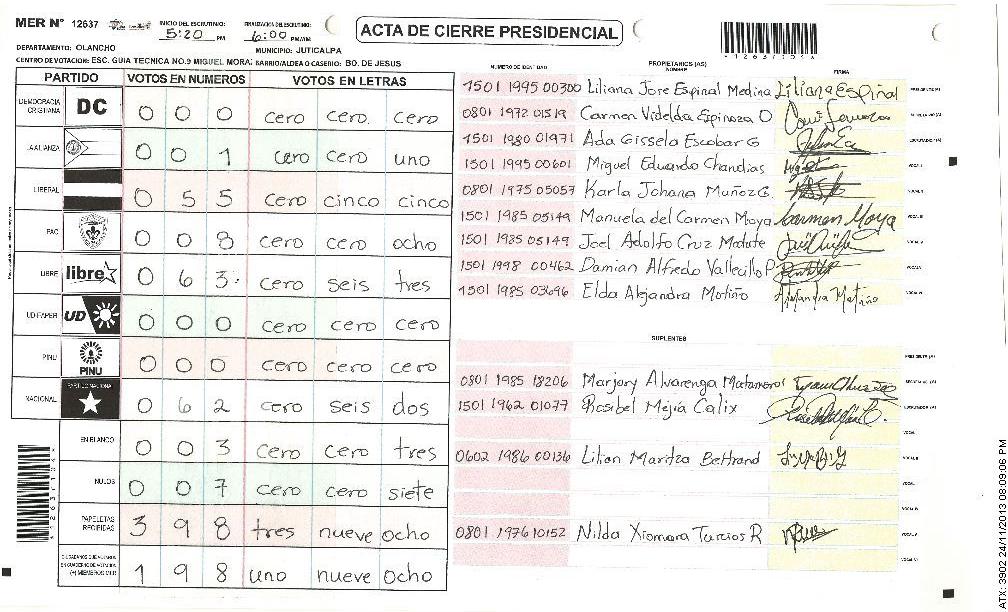 MER N° 12637
INICIO DEL ESCRUTINIO: 5:20 PM
FINALIZACION DEL ESCRUTINIO: 6:00 PM/AM
ACTA DE CIERRE PRESIDENCIAL
*12637109*
DEPARTAMENTO: OLANCHO
MUNICIPIO: JUTICALPA
CENTRO DE VOTACION: ESC. GUIA TECNICA NO.9 MIGUEL MORA: BARRIO/ALDEA O CASERIO: BO. DE JESUS
PARTIDO VOTOS EN NUMEROS VOTOS EN LETRAS
DEMOCRACIA CRISTIANA DC 0 0 0 cero cero. cero
LA ALIANZA 0 0 1 cero cero uno
LIBERAL 0 5 5 cero cinco cinco
PAC 0 0 8 cero cero ocho
LIBRE libre 0 6 3 cero seis tres
UD FAPER UD 0 0 0 cero cero cero
PINU PINU 0 0 0 cero cero cero
NACIONAL PARTIDO NACIONAL 0 6 2 cero seis dos
EN BLANCO 0 0 3 cero cero tres
NULOS 0 0 7 cero cero siete
PAPELETAS RECIBIDAS 3 9 8 tres nueve ocho
CIUDADANOS QUE VOTARON EN CUADERNO DE VOTACION (+) MIEMBROS MER 1 9 8 uno nueve ocho
NUMERO DE IDENTIDAD PROPIETARIOS (AS) NOMBRE FIRMA
1501 1995 00300 Liliana Jose Espinal Medina Liliana Espinal PRESIDENTE (A)
0801 1972 01519 Carmen Videlda Espinoza O SECRETARIO (A)
1501 1980 01971 Ada Gissela Escobar G ESCRUTADOR (A)
1501 1995 00601 Miguel Eduardo Chandias VOCAL I
0801 1975 05057 Karla Johana Muñoz G. VOCAL II
1501 1985 05149 Manuela del Carmen Moya Carmen Moya VOCAL III
1501 1985 05149 Joel Adolfo Cruz Matute
1501 1998 00462 Damian Alfredo Vallecillo P
1501 1985 03696 Elda Alejandra Motiño Alejandra Motiño
SUPLENTES
PRESIDENTE (A)
0801 1985 18206 Marjory Alvarenga Matamoros SECRETARIO (A)
1501 1962 01077 Rosibel Mejia Calix ESCRUTADOR (A)
0602 1986 00136 Lilian Maritza Bertrand
0801 1976 10152 Nilda Xiomara Turcios R
ATX: 3902 24/11/2013 08:09:06 PM